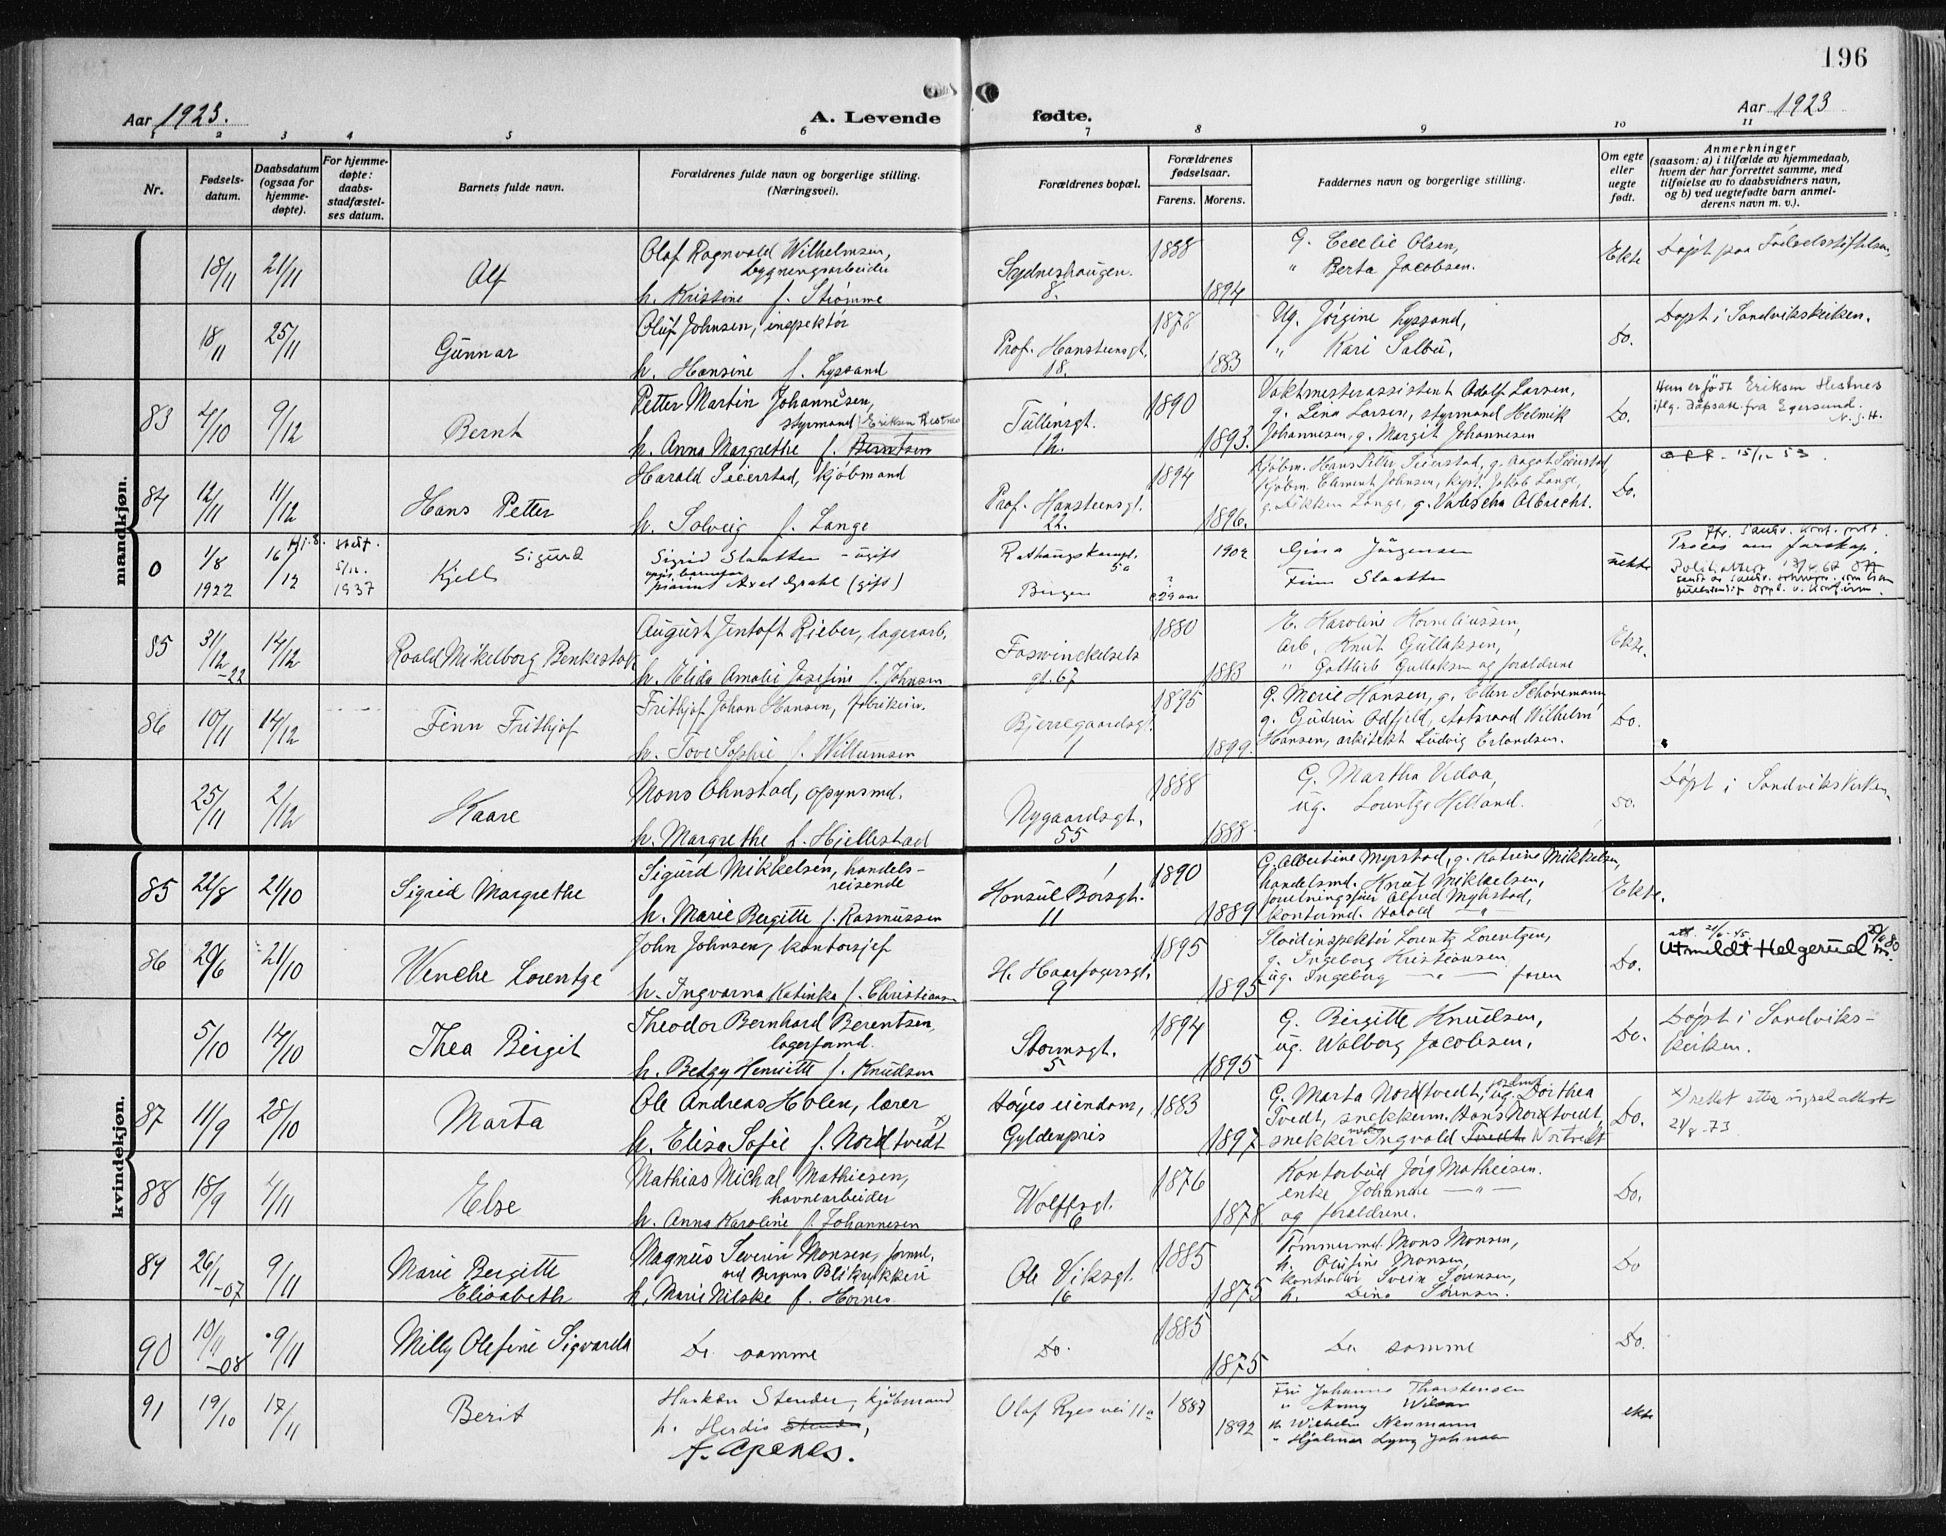 196
Aar 1923.
A. Levende fødte.
Aar 1923
1 2 3 4 5 6 7 8 9 10 11
Nr.
Fødsels-
datum.
Daabsdatum
(ogsaa for
hjemme-
døpte).
For hjemme-
døpte:
daabs-
stadfæstel-
ses datum.
Barnets fulde navn.
Forældrenes fulde navn og borgerlige stilling.
(Næringsvei).
Forældrenes bopæl.
Forældrenes
fødselsaar.
Farens. Morens.
Faddernes navn og borgerlige stilling.
Om egte
eller
uegte
født.
Anmerkninger
(saasom: a) i tilfælde av hjemmedaab,
hvem der har forrettet samme, med
tilføielse av to daabsvidners navn,
og b) ved uegtefødte barn anmel-
derens navn m. v.).
mandkjøn.
18/11 21/11 Alf
Olaf Ragnvald Wilhelmsen,
bygningsarbeider
h. Kristine f. Strømme
Sydneshaugen.
8.
1888
1894
G. Cecelie Olsen,
" Berta Jacobsen.
Ekte
Døpt paa Fødselsstiftelsen
18/11 25/11 Gunnar
Oluf Johnsen, inspektør
h. Hansine f. Lyssand
Prof. Hansteensgt.
18.
1878
1883
Ug. Jørgine Lyssand,
" Kari Salbu.
Do.
Døpt i Sandvikskirken.
83 4/10 9/12 Bernt
Petter Martin Johannesen,
styrmand Eriksen Hestnes
h. Anna Margrethe f. Berntsen
Tullinsgt.
12.
1890
1893.
Vaktmesterassistent Adolf Larsen,
g. Lena Larsen, styrmand Helmik
Johannesen, g. Margit Johannesen
Do.
Hun er født Eriksen Hestnes
iflg. dåpsatt. fra Egersund.
15/12 53.
84 12/11 11/12 Hans Petter
Harald Seierstad, kjøbmand
h. Solveig f. Lange
Prof. Hansteensgt.
22.
1894
1896.
Kjøbm. Hans Petter Seierstad, g. Aagot Seierstad
Kjøbm. Clement Johnsen, kapt. Jakob Lange,
Lange, g. Valescha Albrecht.
Do.
0 1/8 1922 16/12
5/12.
1937
Kjell Sigurd
Sigrid Slaatten - ugift
opgit barnefar
Axel Grahl (gift)
Bergen
1902
29 aar
Gina Jørgensen
Finn Slaatten
uekte
Proces om farskap.
Politiattest 13/4.67
85 31/12 -22 14/12 Roald Mikelborg Benkestok
August Jentoft Rieber, lagerarb.
h. Elida Amalie Josefine f. Johnsen
Foswinckelsls
gt. 67
1880
1883
E. Karoline Korneliussen,
Arb. Knut Gullaksen,
" Gottlieb Gullaksen og forældrene
Ekte.
86 10/11 14/12 Finn Frithjof
Frithjof Johan Hansen, fabrikeier.
h. Tove Sophie f. Willumsen
Bjerregaardsgt.
1
1895
1899.
G. Marie Hansen, g. Ellen Schønemann
g. Gudrun Odfjeld, Wilhelm
Hansen, arkitekt Ludvig Erlandsen.
Do.
25/11 2/12 Kaare
Mons Ohnstad, opsynsmd.
h. Margrethe f. Hjellestad
Nygaardsgt.
55
1888
1888.
G. Martha Vedaa,
ug. Lorentze Hilland.
Do.
Døpt i Sandvikskirken.
kvindekjøn.
85 22/8 21/10 Sigrid Margrethe
Sigurd Mikkelsen, handels-
reisende
h. Marie Bergitte f. Rasmussen
Konsul Børsgt.
11
1890
1889
G. Albertine Myrstad, g. Katrine Mikkelsen,
handelsmd. Knut Mikkelsen,
forretningsfører Alfred Myrstad,
kontormd. Harald — " —
Ekte.
86 20/6 21/10 Wenche Lorentze
John Johnsen, kontorsjef
h. Ingvarna Katinka f. Christiansen
H. Haarfagersgt.
9
1895
1895
Skoleinspektør Lorentz Lorentzen,
g. Ingeborg Kristiansen
ug. Ingeborg — " — faren
Do.
att. 21/6-45.
Utmeldt Helgerud 80
5/10 14/10 Thea Birgit
Theodor Bernhard Berentsen,
lagerformd.
h. Betzy Henriette f. Knudsen
Stormsgt.
5
1894
1895
G. Birgitte Knudsen,
ug. Walborg Jacobsen.
Do.
Døpt i Sandviks-
kirken.
87 11/9 28/10 Marta
Ole Andreas Holen, lærer
h. Elisa Sofie f. Nordtvedt x)
Høyes eiendom,
Gyldenpris
1883
1897
G. Marta Nordtvedt, jordmor ug. Dorthea
Tvedt, snekkerm. Hans Nordtvedt,
snekker Ingvald Tvedt Nortvedt
Do.
x) rettet etter vigselattest
24/8-73
88 18/9 4/11 Else
Mathias Michal Mathiesen,
havnearbeider
h. Anna Karoline f. Johannesen
Wolffsgt.
6
1876
1878
Kontorbud Jørg Mathiesen.
enke Johanne — " —
og forældrene.
Do.
89 26/11 -07 9/11 Marie Bergitte
Elisabeth
Magnus Severin Monsen, formd.
ved Bergens Bliktrykkeri
h. Marie Nilske f. Hornes
Ole Viksgt.
16
1885
1875
Tømmermd. Mons Monsen,
h. Olufine Monsen,
kontrollør Svein Sørensen,
h. Dina Sørensen.
Do
90 10/11 -08 9/11 Milly Olefine Sigvarda
De samme
Do.
1885
1875
De samme
Do.
91 19/10 17/11 Berit
Haakon Stender, kjøbmand
h. Herdis Stender,
f. Apenes.
Olaf Ryes vei 11a
1887
1892
Fru Johanna Thorstensen
" Anny Wilson
Hr. Wilhelm Neumann
" Hjalmar Lyng Johnsen
ekte